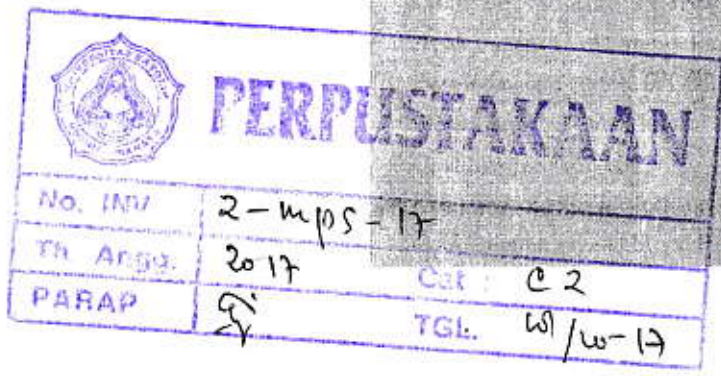 PERPUSTAKAAN
No. INV 2-mps-17
Th. Angg. 2017 Cat : C2
PARAP TGL.